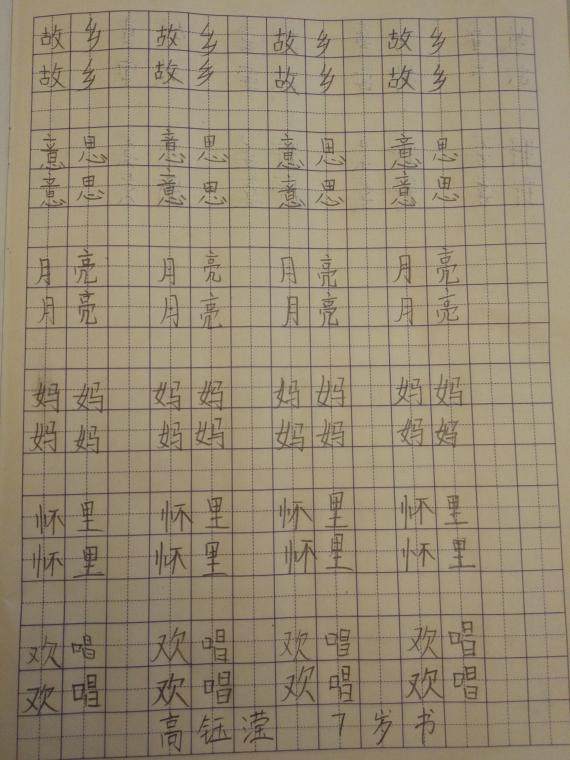 故乡 故乡 故乡 故乡
故乡 故乡 故乡 故乡
意思 意思 意思 意思
意思 意思 意思 意思
月亮 月亮 月亮 月亮
月亮 月亮 月亮 月亮
妈妈 妈妈 妈妈 妈妈
妈妈 妈妈 妈妈 妈妈
怀里 怀里 怀里 怀里
怀里 怀里 怀里 怀里
欢唱 欢唱 欢唱 欢唱
欢唱 欢唱 欢唱 欢唱
高钰滢 7岁书